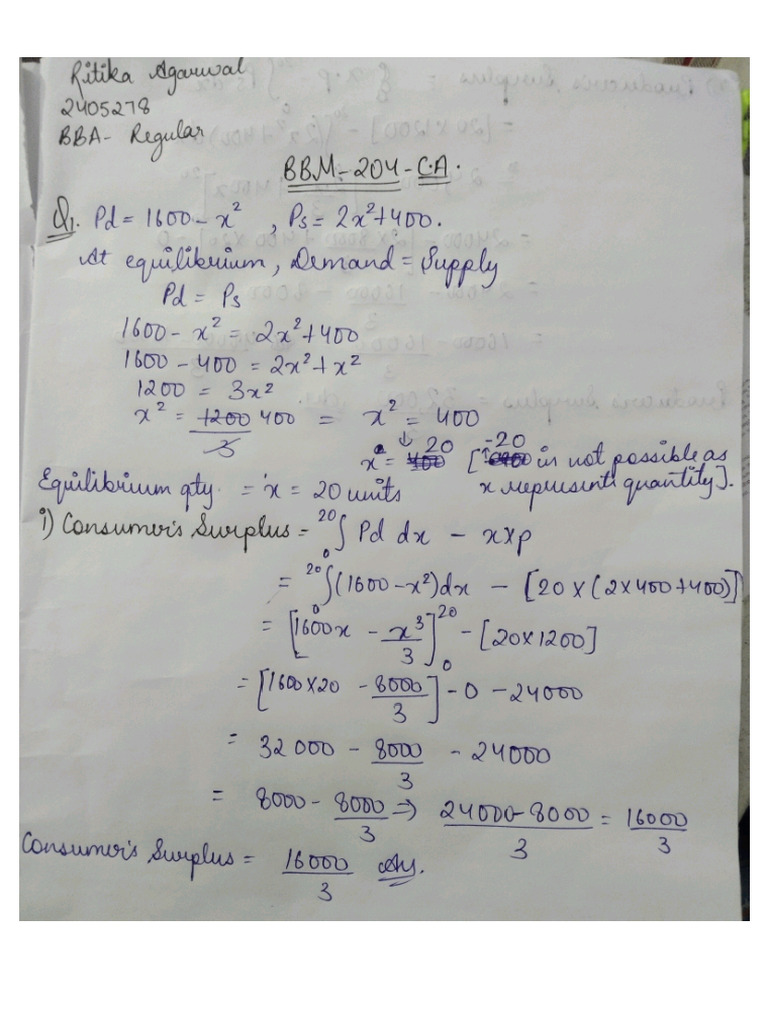 Ritika Agarwal
2405278
BBA- Regular
BBM-204-C.A.
Q1. Pd = 1600 - x² , Ps = 2x²+400.
At equilibrium, Demand = Supply
Pd = Ps
1600 - x² = 2x²+400
1600 - 400 = 2x²+x²
1200 = 3x²
x² = 1200/3 400 = x² = 400
x = 20 [-20 is not possible as
x represents quantity].
Equilibrium qty = x = 20 units
i) Consumer's Surplus = ²⁰∫₀ Pd dx - x×p
= ²⁰∫₀ (1600-x²)dx - [20×(2×400+400)]
= [1600x - x³/3]²⁰₀ - [20×1200]
= [1600×20 - 8000/3] - 0 - 24000
= 32000 - 8000/3 - 24000
= 8000 - 8000/3 ⇒ 24000-8000/3 = 16000/3
Consumer's Surplus = 16000/3 Ans.